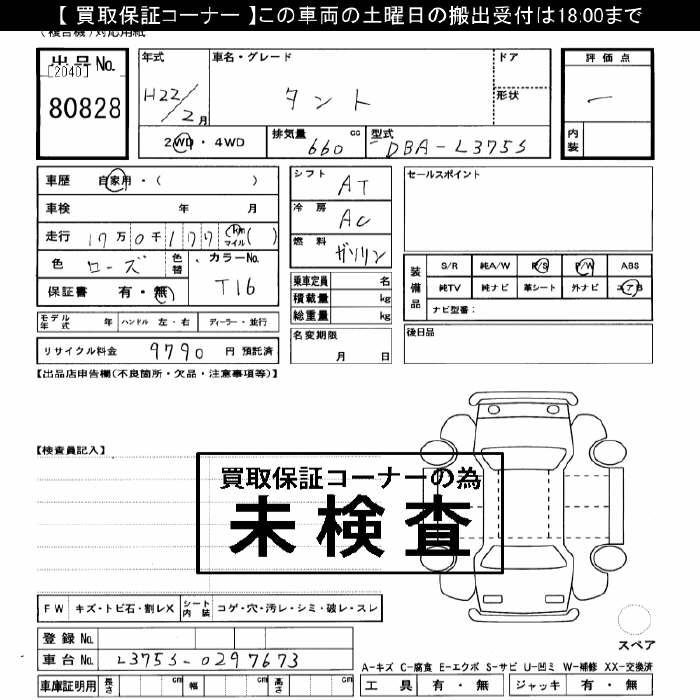 【 買取保証コーナー 】この車両の土曜日の搬出受付は18:00まで
(複合機)対応用紙
出品No. 年式 車名・グレード ドア 評価点
[2040]
80828 H22/2月 タント 形状 ー
2WD・4WD 排気量 660 cc 型式 DBA-L375S 内装
車歴 自家用・( ) シフト AT セールスポイント
車検 年 月 冷房 AC
走行 17万0千177 km マイル ( ) 燃料 ガソリン
色 ローズ 色替 カラーNo. T16 装備品 S/R 純A/W P/S P/W ABS
保証書 有・無 乗車定員 名 純TV 純ナビ 革シート 外ナビ エアB
積載量 kg ナビ型番:
モデル年式 年 ハンドル 左・右 ディーラー・並行 総重量 kg 後日品
リサイクル料金 9790 円 預託済 名変期限 月 日
【出品店申告欄(不良箇所・欠品・注意事項等)】
【検査員記入】
買取保証コーナーの為
未検査
FW キズ・トビ石・割レX シート内装 コゲ・穴・汚レ・シミ・破レ・スレ
登録No. スペア
車台No. L375S-0297673
A-キズ C-腐食 E-エクボ S-サビ U-凹ミ W-補修 XX-交換済
車庫証明用 長さ cm 幅 cm 高さ cm 工具 有・無 ジャッキ 有・無